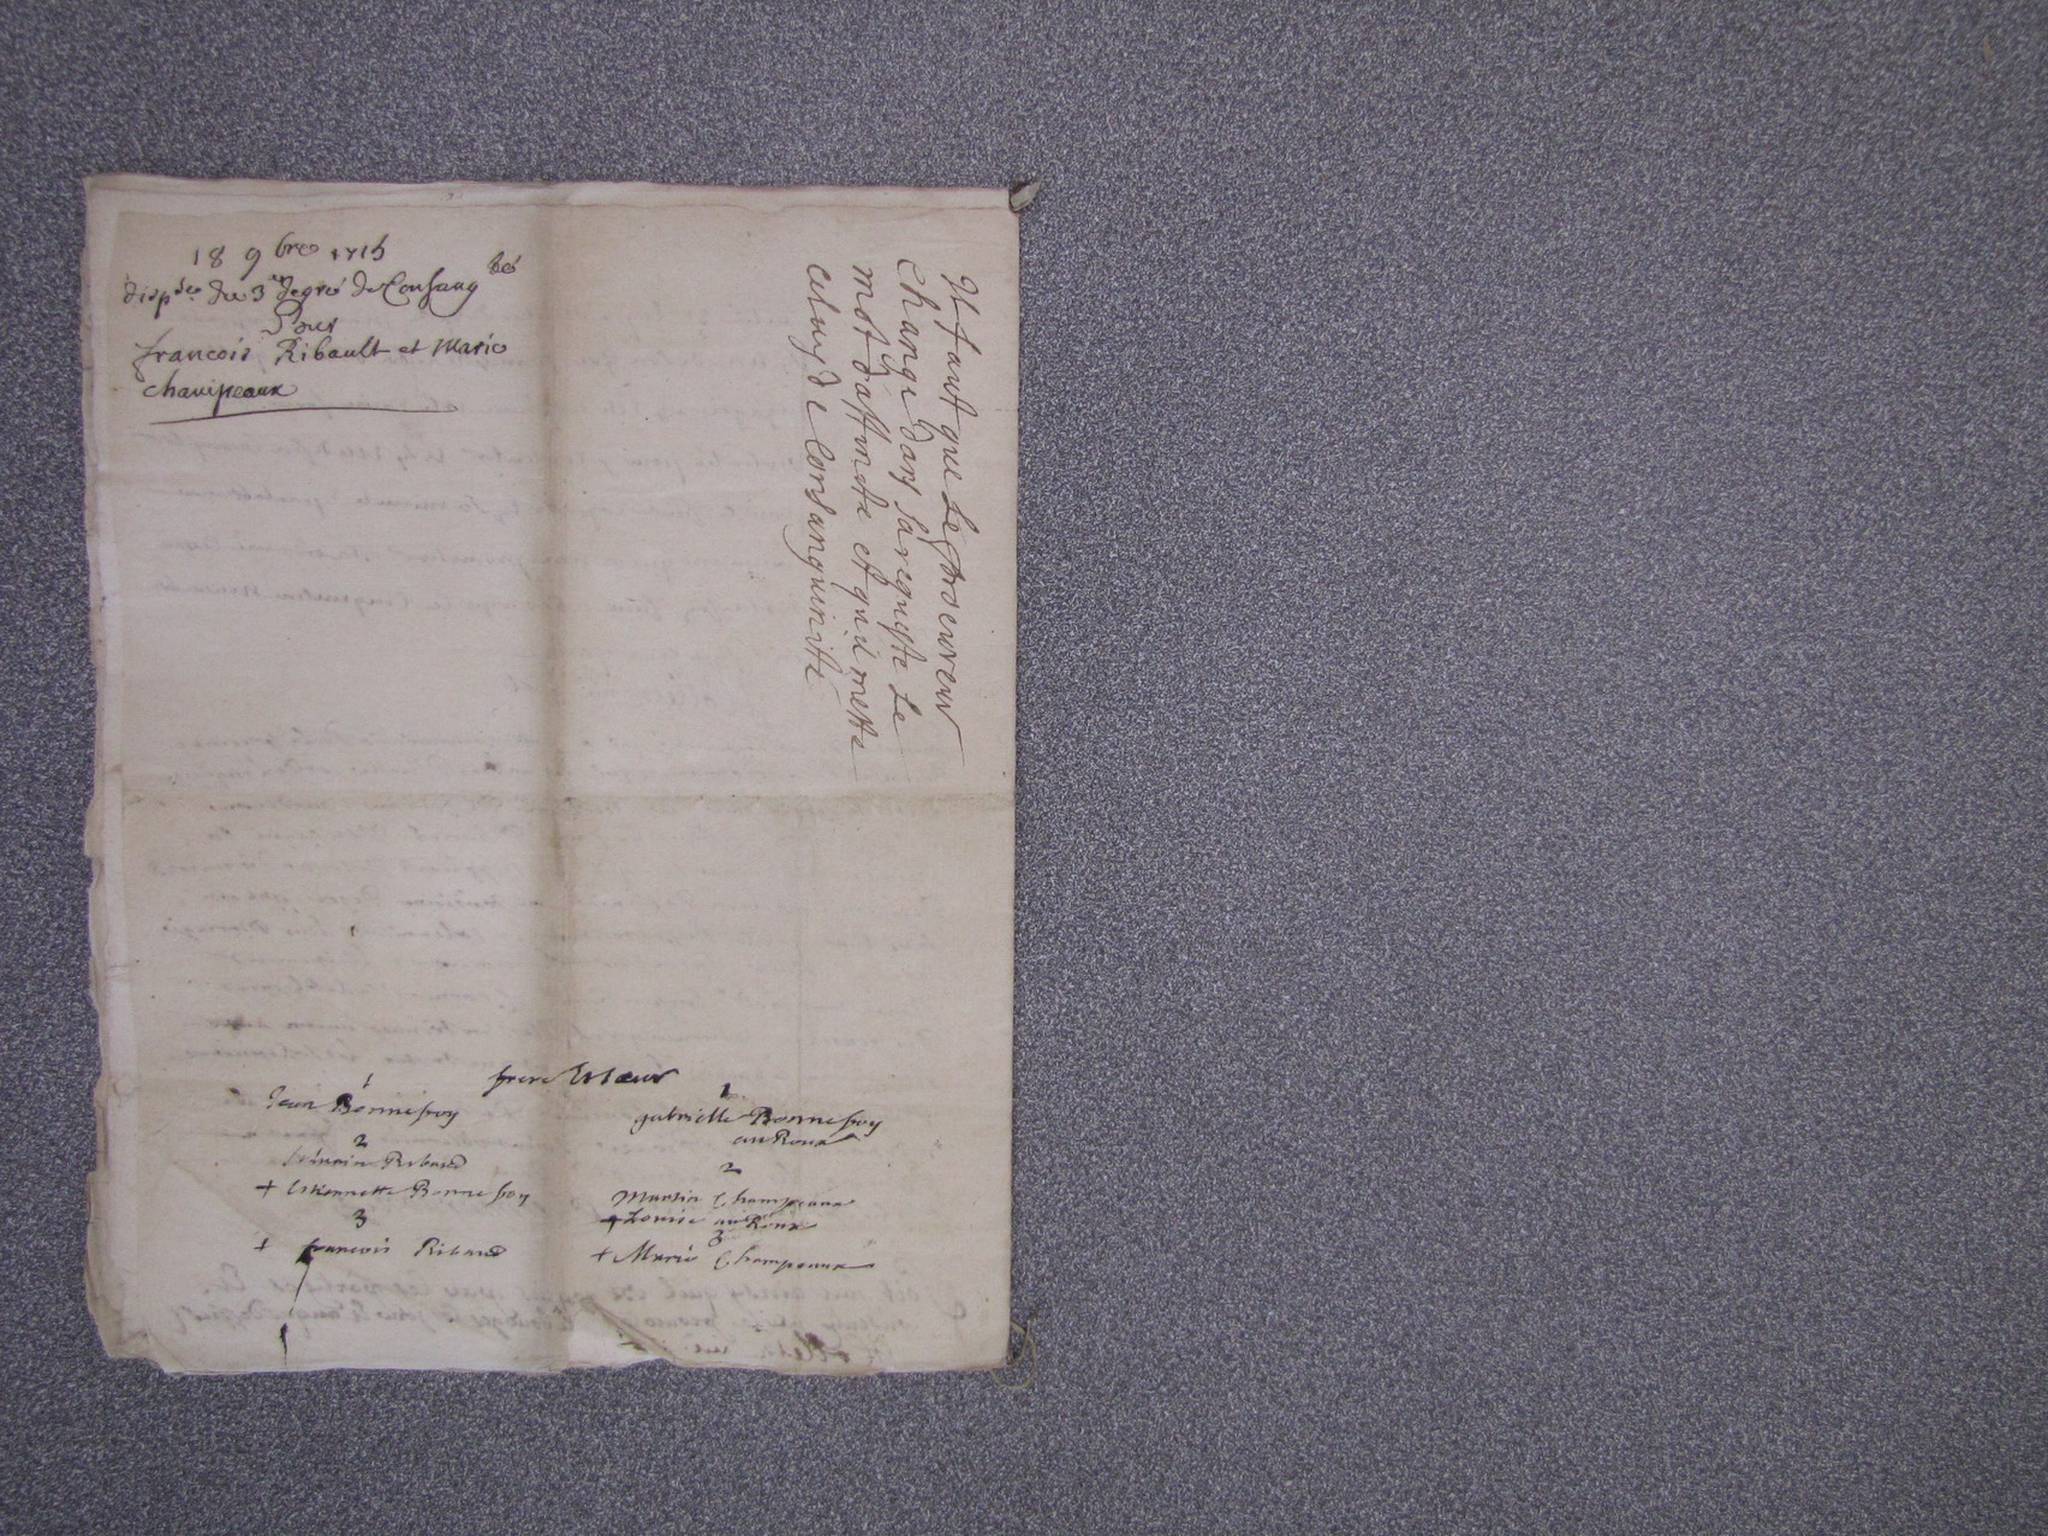 18 9bre 1715
dispse du 3e degré de Consangté
Pour
francois Ribault et Marie
champeaux
Il faut que Le procureur
change dans sa requiste Le
mot d'affinite et qu'il mette
celuy de Consanguinité
frere Et sœur
1
Jean Bonnefoy
2
Ribaud
+ Estiennette Bonnefoy
3
+ francois Ribaud
1
gabrielle Bonnefoy
auRoux
2
Martin Champeaux
+ Louise auRoux
3
+ Marie Champeaux